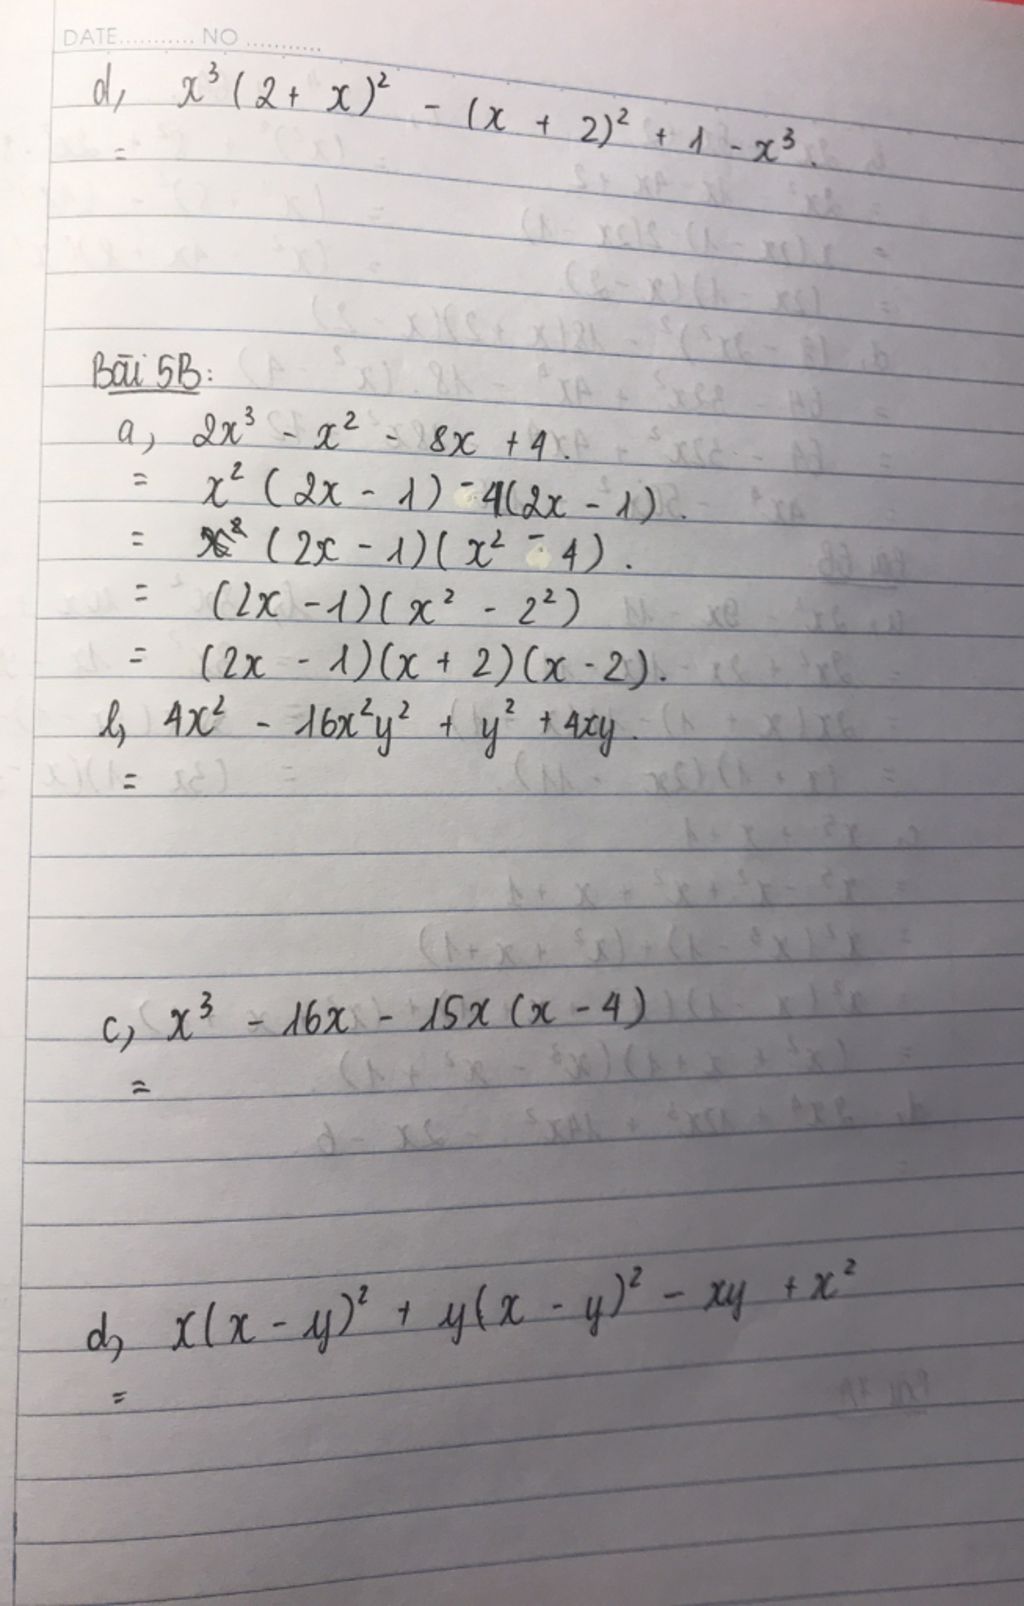 DATE........... NO ...........
d, x³(2 + x)² - (x + 2)² + 1 - x³.
=
Bài 5B:
a, 2x³ - x² - 8x + 4.
= x² (2x - 1) - 4(2x - 1).
= (2x - 1)(x² - 4).
= (2x - 1)(x² - 2²)
= (2x - 1)(x + 2)(x - 2).
b, 4x² - 16x²y² + y² + 4xy.
=
c, x³ - 16x - 15x (x - 4)
=
d, x(x - y)² + y(x - y)² - xy + x²
=